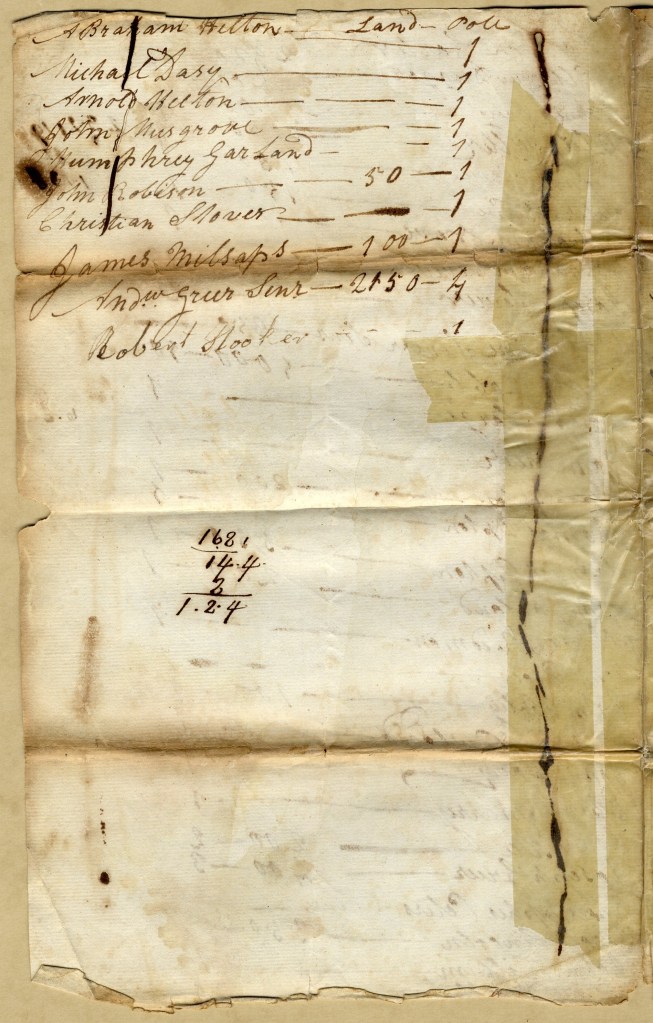 Abraham Helton — Land — Poll
1
Michael Dasy — 1
Arnold Helton — — 1
John Musgrove — — 1
Humphrey Garland — — 1
John Robison — — 50 — 1
Christian Stover — 1
James Milsaps — 100 — 1
Andw. Greer Senr — 2150 — 4
Robert Hooker — 1
168
14.4
2
1.2.4